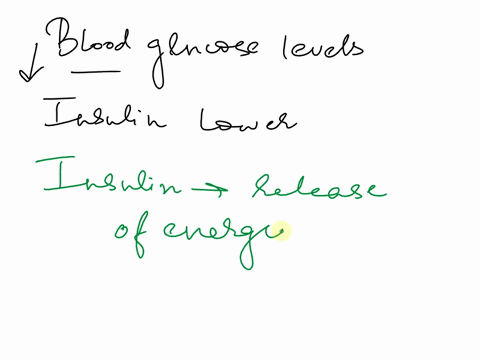 ↓ Blood glucose levels
Insulin Lower
Insulin → release
of energy